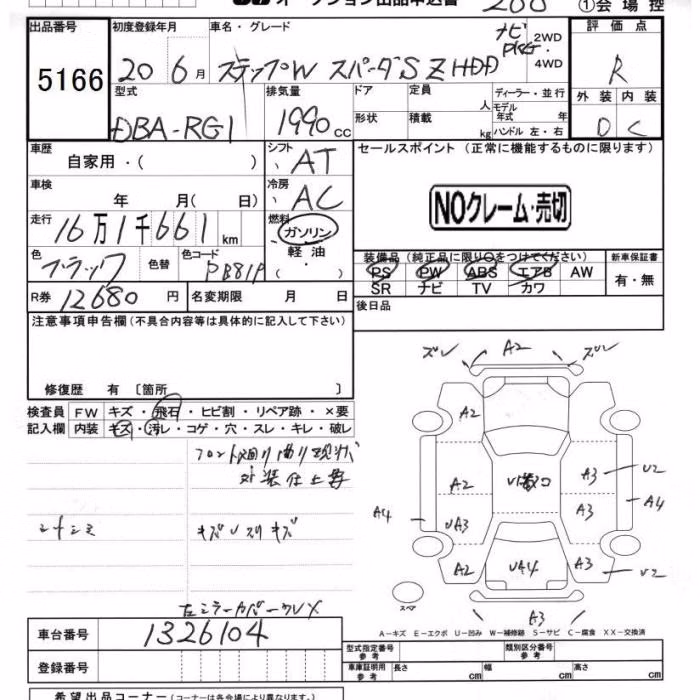 オークション出品申込書
①会場控
出品番号 5166
初度登録年月 20 6月
車名・グレード ステップW スパーダS Z HDD ナビ PKG.
2WD ・ 4WD
評価点 R
外装 内装
D C
型式 DBA-RG1
排気量 1990 cc
ドア 形状
定員 人
積載 kg
ディーラー・並行
モデル年式 年
ハンドル 左・右
車歴 自家用・( )
シフト AT
セールスポイント (正常に機能するものに限ります)
NOクレーム・売切
車検 年 月( 日)
冷房 AC
走行 16万1千661 km
燃料 ガソリン・軽油・( )
色 ブラック 色替 色コード PB81P
装備品 (純正品に限り○をつけてください)
PS PW ABS エアB AW
SR ナビ TV カワ
新車保証書 有・無
R券 12680 円 名変期限 月 日
後日品
注意事項申告欄 (不具合内容等は具体的に記入して下さい)
修復歴 有 〔箇所 〕
検査員記入欄
FW キズ・飛石・ヒビ割・リペア跡・×要
内装 キズ・汚レ・コゲ・穴・スレ・キレ・破レ
シートシミ
キズ
左ミラーカバー
ズレ A2 ズレ
A2
A2 A3 U2
A4 UA3 A3 A4
A2 UA4 A3 U2
スペア
A3
A-キズ E-エクボ U-凹み W-補修跡 S-サビ C-腐食 XX-交換済
車台番号 1326104
登録番号
型式指定番号 参考
類別区分番号 参考
車庫証明用 参考 長さ cm 幅 cm 高さ cm
希望出品コーナー (コーナーは各会場により異なります。)